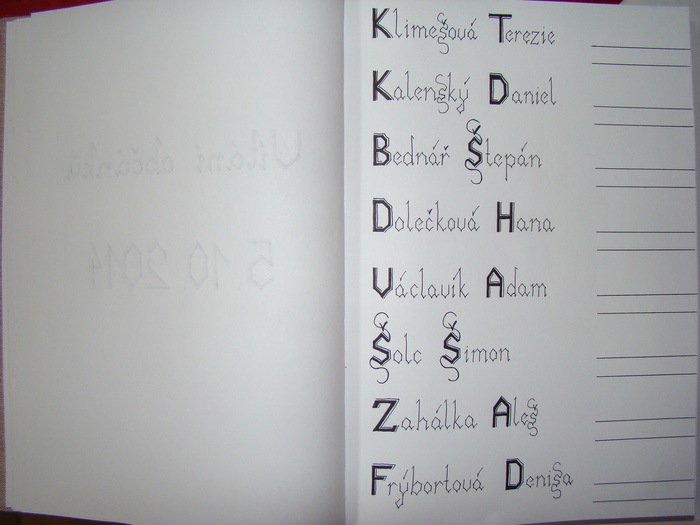 Vítání občánků
5 10 2014
Klimešová Terezie
Kalenský Daniel
Bednář Štepán
Dolečková Hana
Václavík Adam
Šolc Šimon
Zahálka Aleš
Frýbortová Denisa